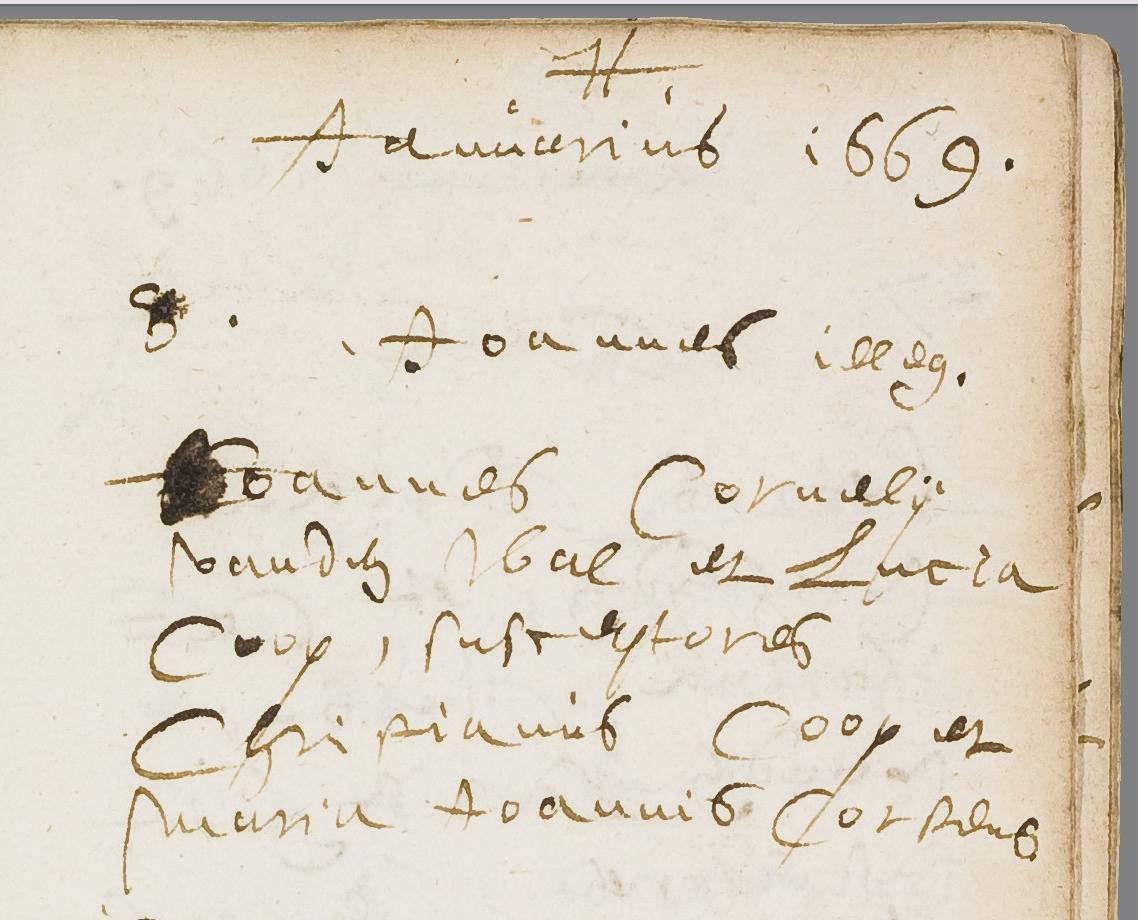 Januarius 1669.
8. Joannes illeg.
Joannes Cornelij
et Lucia
Coop, susceptores
Christianus Coop et
Maria Joannis